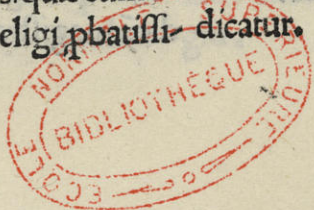 eligi pbatissi- dicatur.
ECOLE NORMALE SUPERIEURE
BIBLIOTHÈQUE